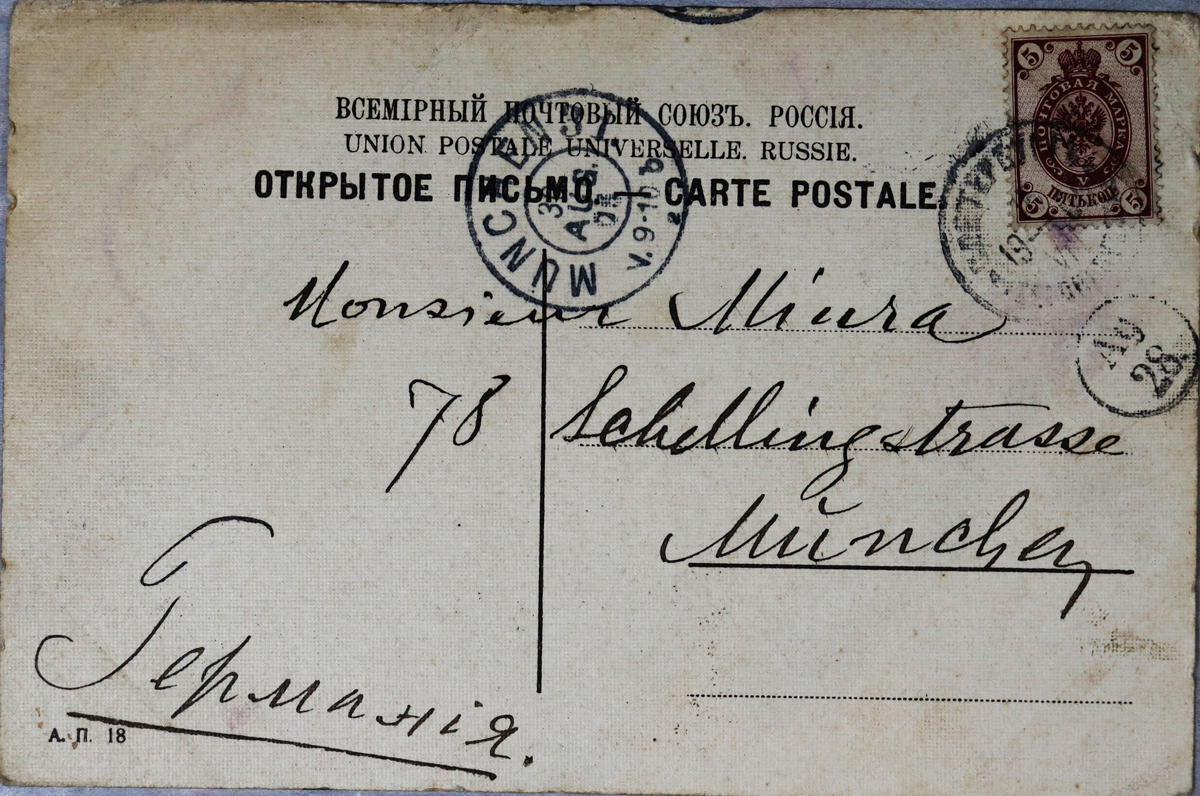 ВСЕМІРНЫЙ ПОЧТОВЫЙ СОЮЗЪ. РОССІЯ.
UNION POSTALE UNIVERSELLE. RUSSIE.
ОТКРЫТОЕ ПИСЬМО. CARTE POSTALE.
5 5
ПОЧТОВАЯ МАРКА
V
5 ПЯТЬ КОП 5
MÜNCHEN 31.
AUG.
V. 9-10
Ag
28
Monsieur Miura
78 Schellingstrasse
München
Германія.
А. П. 18